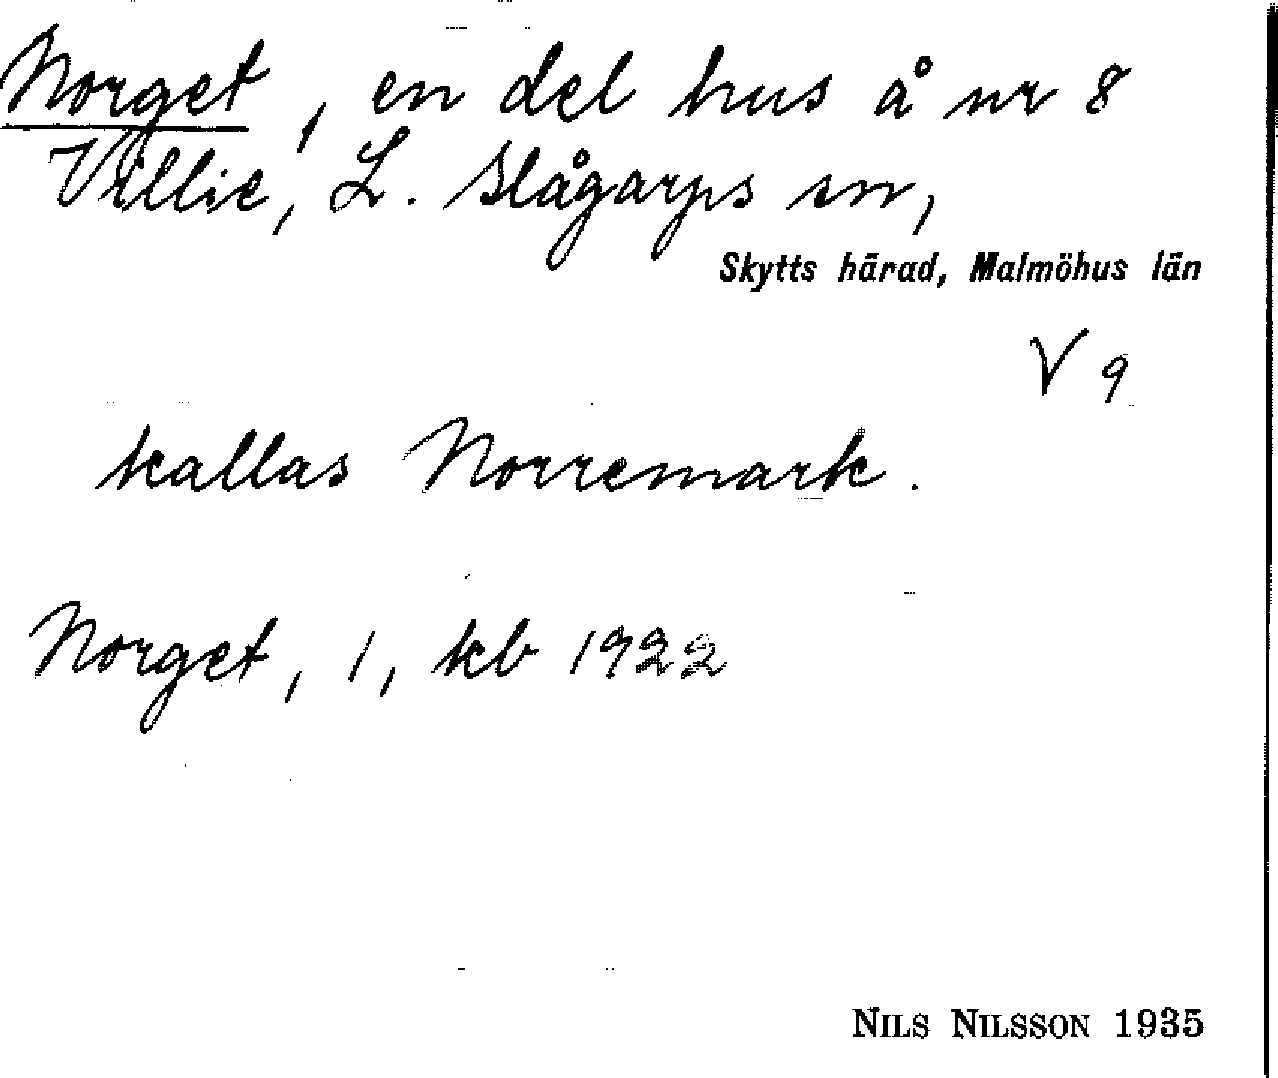 Norget, en del hus å nr 8
Villie, L. Slågarps sn,
Skytts härad, Malmöhus län
V 9
kallas Norremark.
Norget, 1, kb 1922
NILS NILSSON 1935